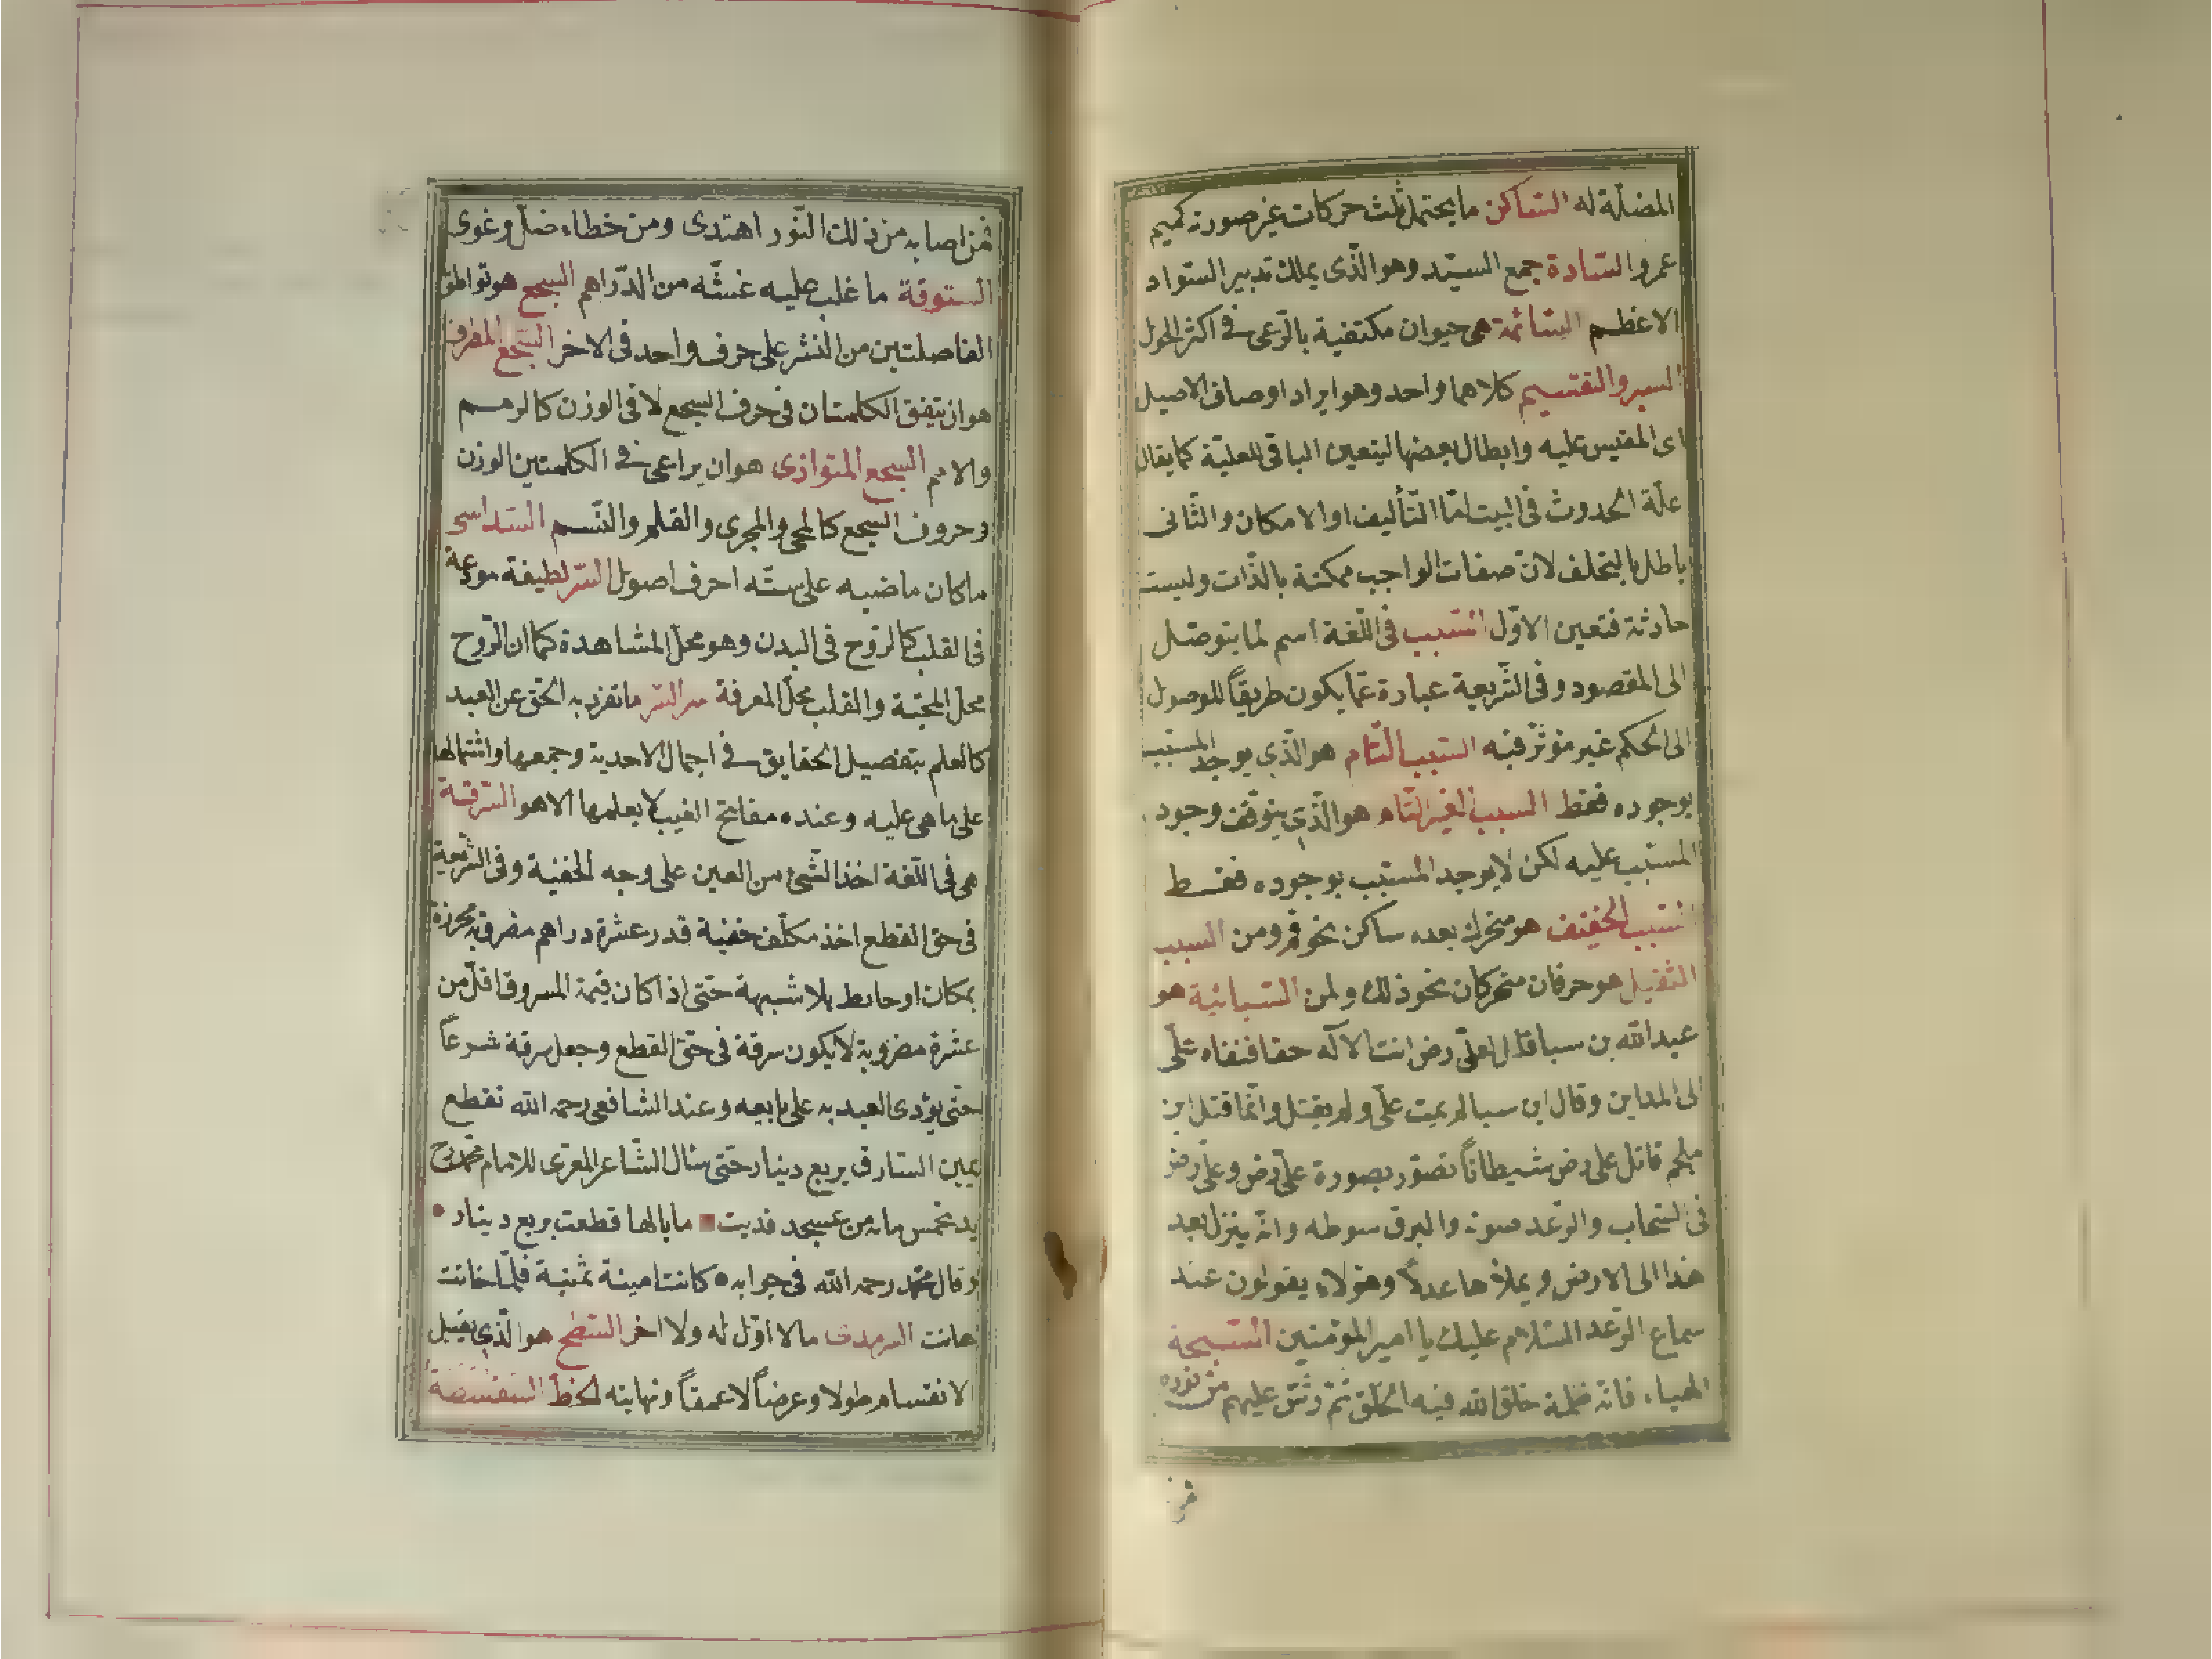 المضلة له الساكن ما يحتمل ثلث حركات غير صورته كميم
عمرو السادة جمع السيد وهو الذى يملك تدبير السواد
الاعظم السائمة هى حيوان مكتفية بالرعى فى اكثر الحول
السبر والتقسيم كلاهما واحد وهو ايراد اوصاف الاصيل
اى المقيس عليه وابطال بعضها ليتعين الباقى للعلية كما يقال
علة الحدوث فى البيت امّا التأليف او الامكان والثانى
باطل بالتخلف لان صفات الواجب ممكنة بالذات وليست
حادثة فتعين الاوّل السبب فى اللغة اسم لما يتوصل
الى المقصود وفى الشريعة عبارة عمّا يكون طريقاً للوصول
الى الحكم غير مؤثر فيه السبب التام هو الذى يوجد المسبب
بوجوده فقط السبب الغير التام هو الذى يتوقف وجود
المسبب عليه لكن لا يوجد المسبب بوجوده فقط
السبب الخفيف هو متحرك بعده ساكن نحو قم ومن السبب
الثقيل هو حرفان متحركان نحو ذلك ولمن السبائية هو
عبد الله بن سبا قال لعلى رض انت الاله حقا فنفاه على
الى المداين وقال ابن سبا لم يمت على ولم يقتل وانما قتل ابن
ملجم قاتل على رض شيطاناً تصور بصورة على رض وعلى رض
فى السحاب والرعد صوته والبرق سوطه وانه ينزل بعد
هذا الى الارض ويملأها عدلاً وهؤلاء يقولون عند
سماع الرعد السلام عليك يا امير المؤمنين السبحة
الهباء فانه ظلمة خلق الله فيه الخلق ثم رش عليهم من نوره
فمن
فمن اصابه من ذلك النور اهتدى ومن خطاء ضل وغوى
الستوقة ما غلب عليه غشه من الدراهم السجع هو تواطؤ
الفاصلتين من النثر على حرف واحد فى الاخر السجع المطرف
هو ان يتفق الكلمتان فى حرف السجع لا فى الوزن كالرمم
والامم السجع المتوازى هو ان يراعى فى الكلمتين الوزن
وحروف السجع كالمحى والمجرى والقلم والنسم السداسى
ما كان ماضيه على ستّه احرف اصول السر لطيفة مودعة
فى القلب كالروح فى البدن وهو محل المشاهدة كما ان الروح
محل المحبّة والقلب محل المعرفة سر السر ما تفرد به الحق عن العبد
كالعلم بتفصيل الحقايق فى اجمال الاحدية وجمعها واشتمالها
على ما هى عليه وعنده مفاتح الغيب لا يعلمها الا هو السرقة
هى فى اللغة اخذ الشئ من العين على وجه الخفية وفى الشريعة
فى حق القطع اخذ مكلف خفية قدر عشرة دراهم مضروبة محرزة
بمكان او حايط بلا شبهة حتى اذا كان قيمة المسروق اقل من
عشرة مضروبة لا يكون سرقة فى حق القطع وجعل سرقة شرعاً
حتى يؤدى العبد به على بايعه وعند الشافعى رحمه الله تقطع
يمين السارق بربع دينار حتى سئال الشاعر المعرى للامام محمد رح
يد بخمس مائه من عسجد فديت ما بالها قطعت بربع دينار
وقال محمد رحمه الله فى جوابه كانت امينة ثمينة فلما خانت
هانت السرمدى ما لا اوّل له ولا اخر السطح هو الذى يقبل
الانقسام طولا وعرضاً لا عمقاً ونهايته الخط السفسطة